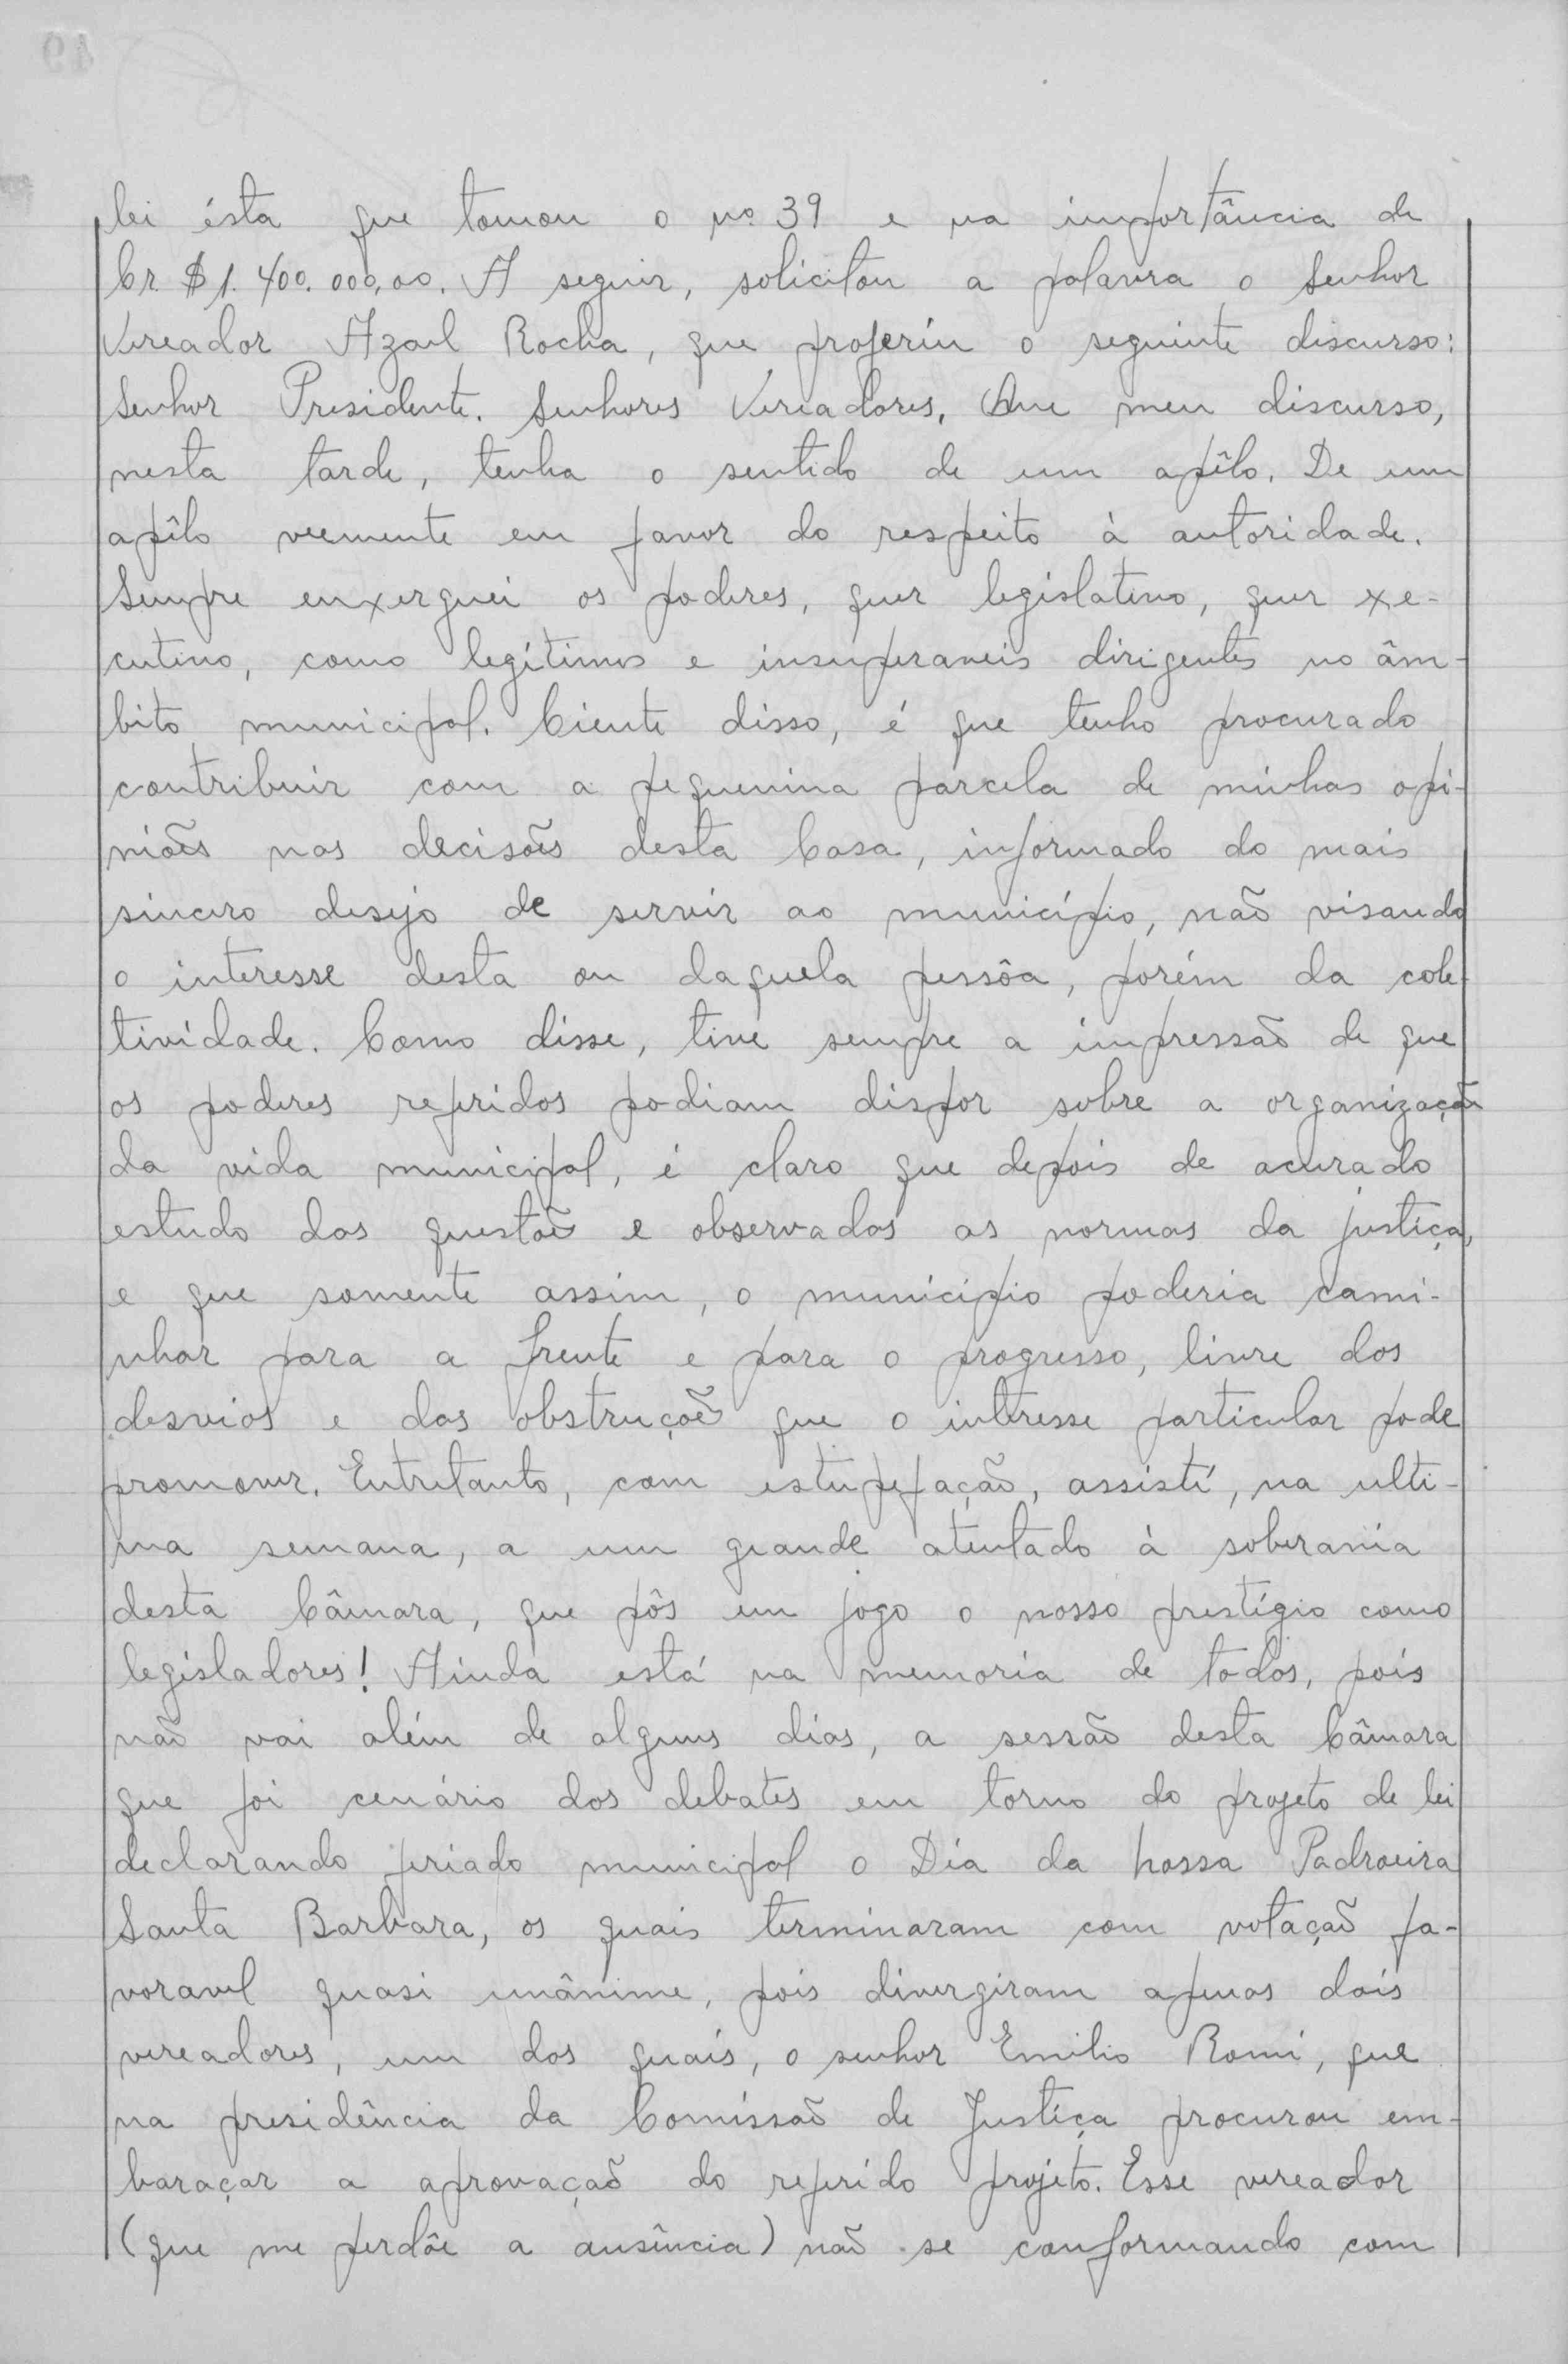 lei ésta que tomou o nº 39 e na importância de
Cr. $1.400.000,00. A seguir, solicitou a palavra o Senhor
Vereador Azael Rocha, que proferiu o seguinte discurso:
Senhor Presidente. Senhores Vereadores. Que meu discurso,
nesta tarde, tenha o sentido de um apêlo. De um
apêlo veemente em favor do respeito à autoridade.
Sempre enxerguei os poderes, quer legislativo, quer exe-
cutivo, como legítimos e insuperaveis dirigentes no âm-
bito municipal. Ciente disso, é que tenho procurado
contribuir com a pequenina parcela de minhas opi-
niões nas decisões desta Casa, informado do mais
sincero desejo de servir ao município, não visando
o interesse desta ou daquela pessôa, porém da cole-
tividade. Como disse, tive sempre a impressão de que
os poderes referidos podiam dispor sobre a organização
da vida municipal, é claro que depois de acurado
estudo das questões e observadas as normas da justiça,
e que somente assim, o município poderia cami-
nhar para a frente e para o progresso, livre dos
desvios e das obstruções que o interesse particular pode
promover. Entretanto, com estupefação, assistí, na ulti-
ma semana, a um grande atentado à soberania
desta Câmara, que pôs em jogo o nosso prestígio como
legisladores! Ainda está na memoria de todos, pois
não vai além de alguns dias, a sessão desta Câmara
que foi cenário dos debates em torno do projeto de lei
declarando feriado municipal o Dia da nossa Padroeira
Santa Barbara, os quais terminaram com votação fa-
voravel quasi unânime, pois divergiram apenas dois
vereadores, um dos quais, o senhor Emilio Romi, que
na presidência da Comissão de Justiça procurou em-
baraçar a aprovação do referido projeto. Esse vereador
(que me perdôe a ausência) não se conformando com